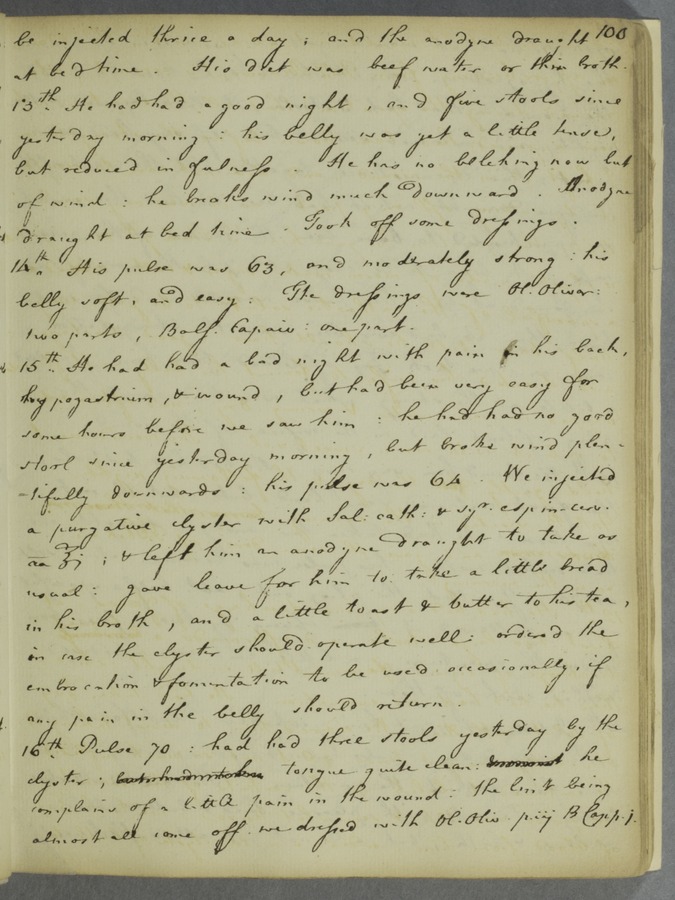 100
be injected thrice a day ; and the anodyne draught
at bed time . His diet was beef water or thin broth .
13th. He had had a good night , and five stools since
yesterday morning : his belly was yet a little tense ,
but reduced in fulness . He has no belching now but
of wind : he breaks wind much downward . Anodyne
draught at bed time . Took off some dressings .
14th. His pulse was 63, and moderately strong : his
belly soft, and easy : The dressings were Ol. Olivar:
two parts , Bals: Capaiv: one part .
15th. He had had a bad night with pain in his back,
hypogastrium , & wound , but had been very easy for
some hours before we saw him : he had had no good
stool since yesterday morning , but broke wind plen-
-tifully downwards : his pulse was 64 . We injected
a purgative clyster with Sal: cath: & syr.
aa ℥j ; & left him an anodyne draught to take as
usual : gave leave for him to take a little bread
in his broth , and a little toast & butter to his tea ,
in case the clyster should operate well : ordered the
embrocation & fomentation to be used occasionally, if
any pain in the belly should return .
16th Pulse 70 : had had three stools yesterday by the
clyster ; tongue quite clean : he
complains of a little pain in the wound : the lint being
almost all come off we dressed with Ol. Oliv. piij B Capp. j.